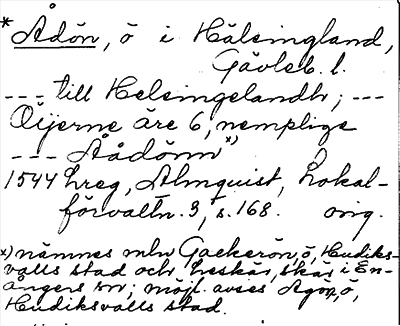 * Ådön, ö i Hälsingland,
Gävleb. l.
--- till Helsingelandh; ---
Öijerne äre 6, nemplige
--- Aådönn x)
1544 hreg, Almquist, Lokal-
förvaltn. 3, s. 168. orig.
x) nämnes mln Gackerön, ö, Hudiks-
valls stad och Leskär, skär i En-
ångers sn; möjl. avses Agön, ö,
Hudiksvalls stad.